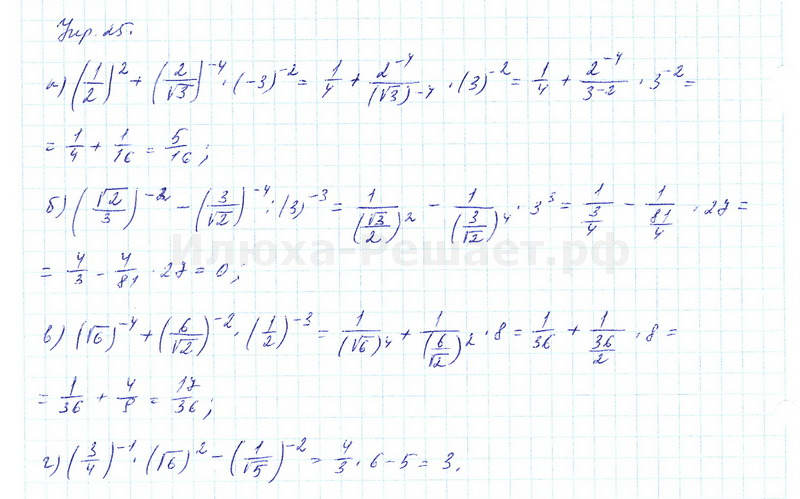 Упр. 25.
а) (1/2)^2 + (2/√3)^-4 · (-3)^-2 = 1/4 + 2^-4/(√3)^-4 · (3)^-2 = 1/4 + 2^-4/3^-2 · 3^-2 =
= 1/4 + 1/16 = 5/16;
б) (√2/3)^-2 - (3/√2)^-4 : (3)^-3 = 1/(√3/2)^2 - 1/(3/√2)^4 · 3^3 = 1/(3/4) - 1/(81/4) · 27 =
Илюха-Решает.рф
= 4/3 - 4/81 · 27 = 0;
в) (√6)^-4 + (6/√2)^-2 · (1/2)^-3 = 1/(√6)^4 + 1/(6/√2)^2 · 8 = 1/36 + 1/(36/2) · 8 =
= 1/36 + 4/9 = 17/36;
г) (3/4)^-1 · (√6)^2 - (1/√5)^-2 = 4/3 · 6 - 5 = 3.